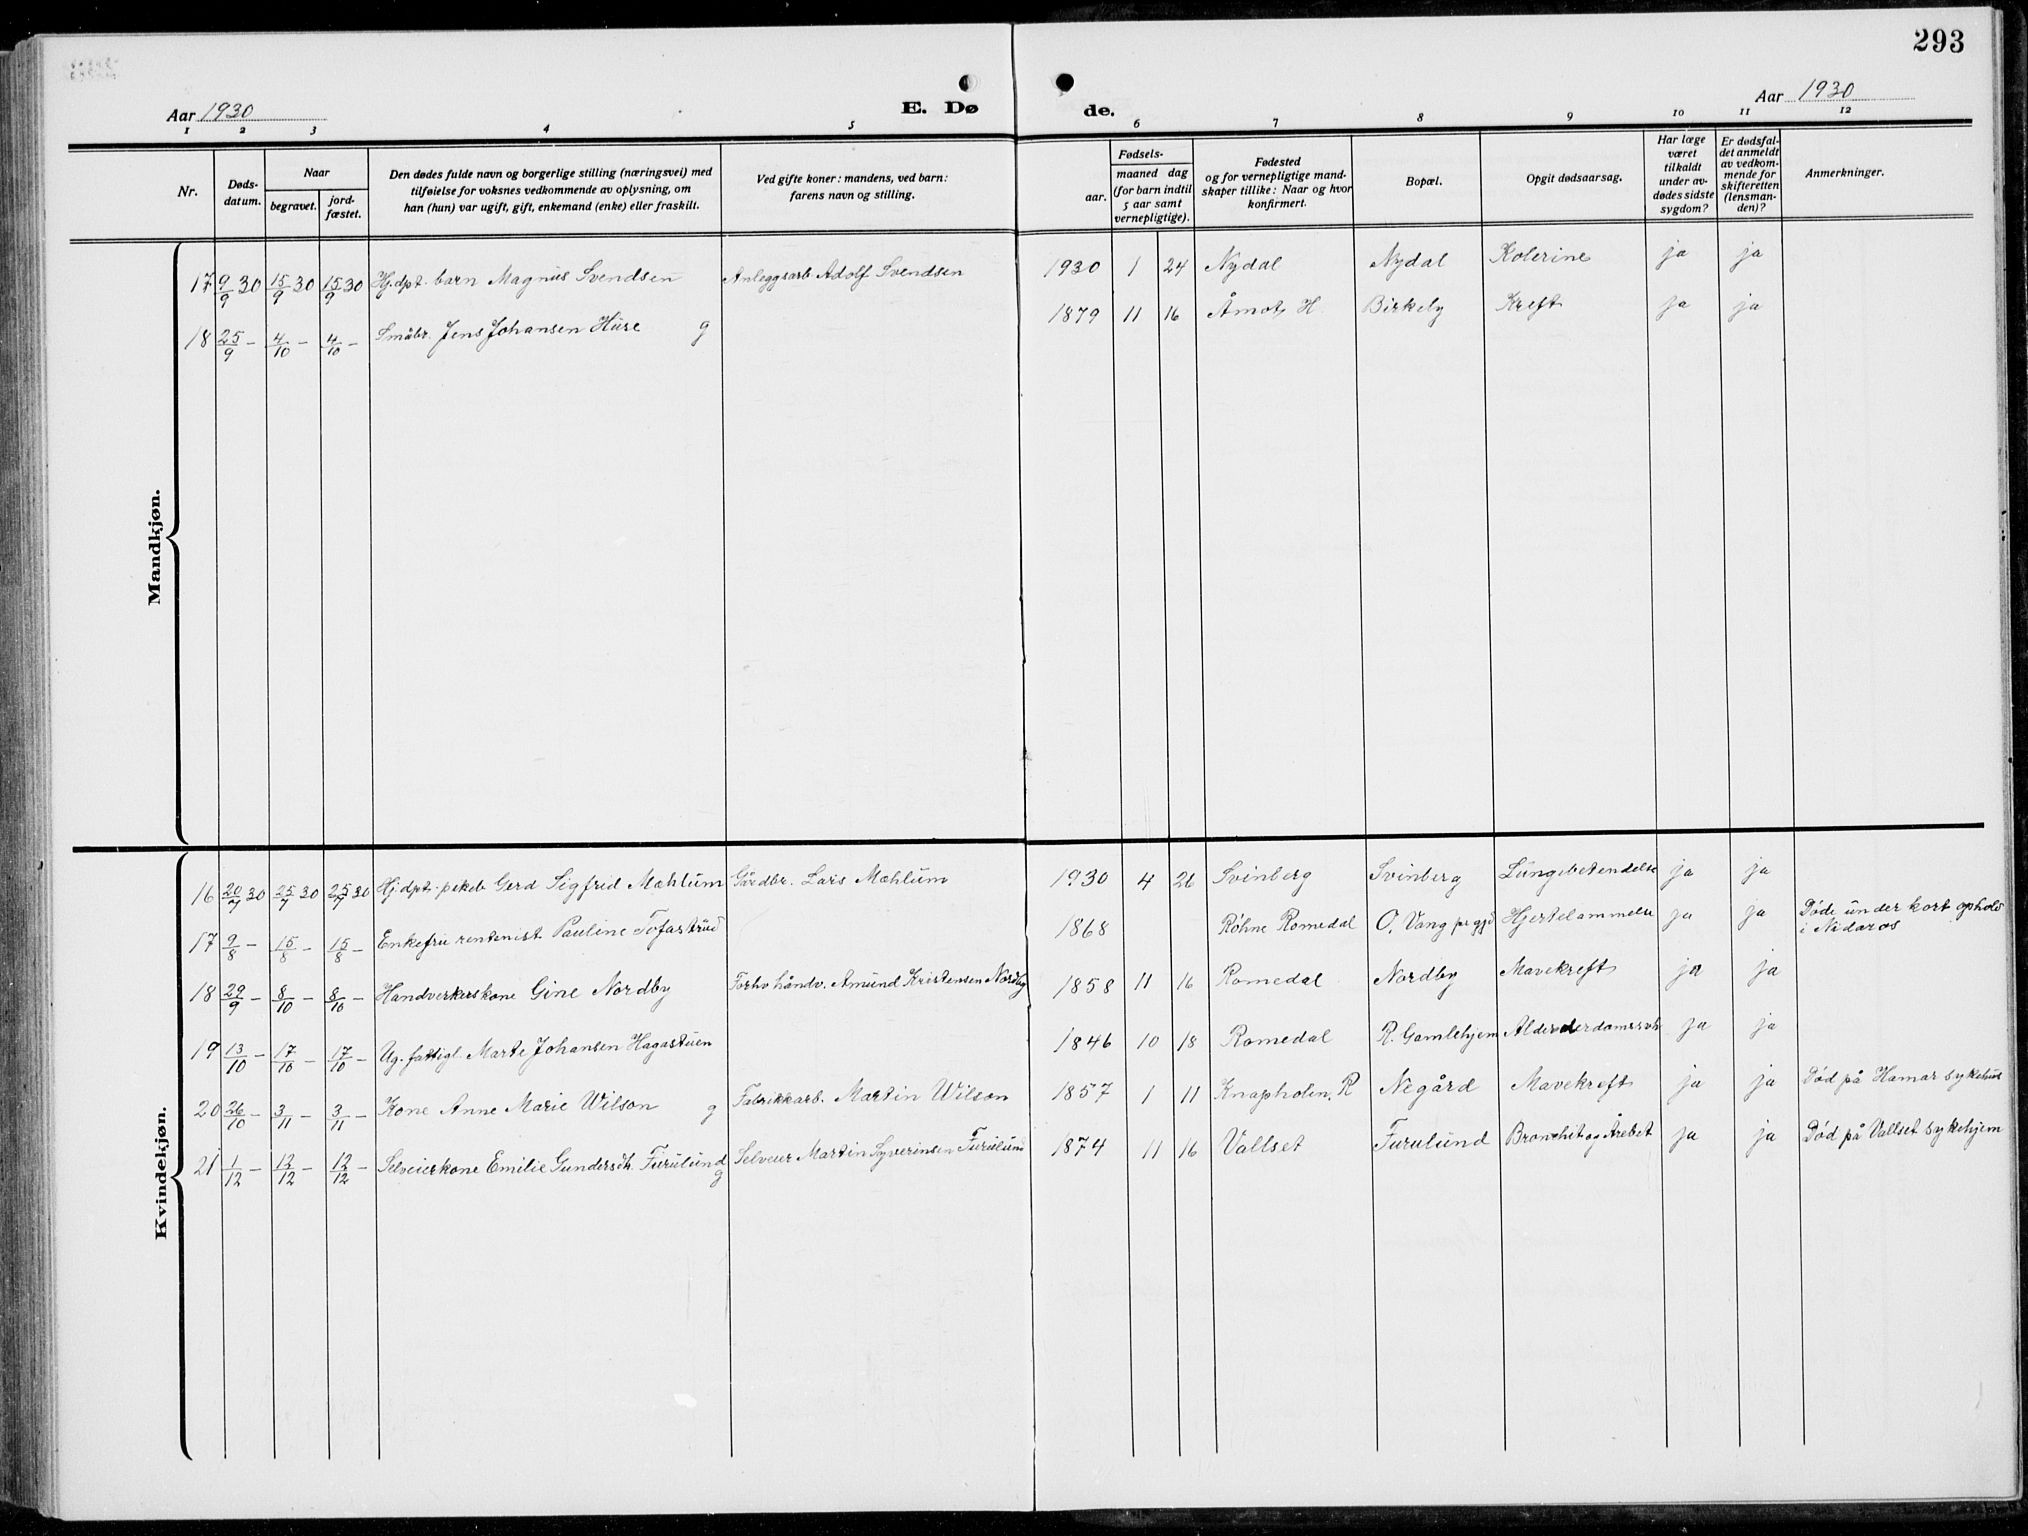 293
Aar 1930
E. Dø
de.
Aar 1930
1 2 3 4 5 6 7 8 9 10 11 12
Nr.
Døds-
datum.
Naar
begravet.
jord-
fæstet.
Den dødes fulde navn og borgerlige stilling (næringsvei) med
tilføielse for voksnes vedkommende av oplysning, om
han (hun) var ugift, gift, enkemand (enke) eller fraskilt.
Ved gifte koner: mandens, ved barn:
farens navn og stilling.
Fødsels-
aar.
maaned dag
(for barn indtil
5 aar samt
vernepligtige).
Fødested
og for vernepligtige mand-
skaper tillike: Naar og hvor
konfirmert.
Bopæl.
Opgit dødsaarsag.
Har læge
været
tilkaldt
under av-
dødes sidste
sygdom?
Er dødsfal-
det anmeldt
av vedkom-
mende for
skifteretten
(lensman-
den)?
Anmerkninger.
Mandkjøn.
17 9/9 30 15/9 30 15/9 30 Hj.dpt. barn Magnus Svendsen Anleggsarb Adolf Svendsen 1930 1 24 Nydal Nydal Kolerine ja ja
18 25/9 – 4/10 – 4/10 – Småbr. Jens Johansen Hüre g 1879 11 16 Åmot, H. Birkely Kreft ja ja
Kvindekjøn.
16 20/7 30 25/7 30 25/7 30 Hj.dpt. pikeb Gerd Sigfrid Mæhlum Gårdbr. Lars Mæhlum 1930 4 26 Svinberg Svinberg Lungebetendelse ja ja
17 9/8 – 15/8 – 15/8 – Enkefru rentenist Pauline Tofastrud 1868 Røhne Romedal O. Vang prgjd Hjertelammelse ja ja Døde under kort ophold
i Nidaros
18 29/9 – 8/10 – 8/10 – Handverkerskone Gine Nordby Forhv håndv. Amund Kristensen Nordby 1858 11 16 Romedal Nordby Mavekreft ja ja
19 13/10 – 17/10 – 17/10 – Ug. fattigl. Marte Johansen Hagastuen 1846 10 18 Romedal R. Gamlehjem ja ja
20 26/10 – 3/11 – 3/11 – Kone Anne Marie Wilson g Fabrikkarb. Martin Wilson 1857 1 11 Knapholen, R Negård Mavekreft ja ja Død på Hamar sykehus
21 1/12 – 12/12 – 12/12 – Selveierkone Emilie Gundersdt. Furulund g Selveier Martin Syverinsen Furulund 1874 11 16 Vallset Furulund Bronchit og Årebet ja ja Død på Vallset sykehjem